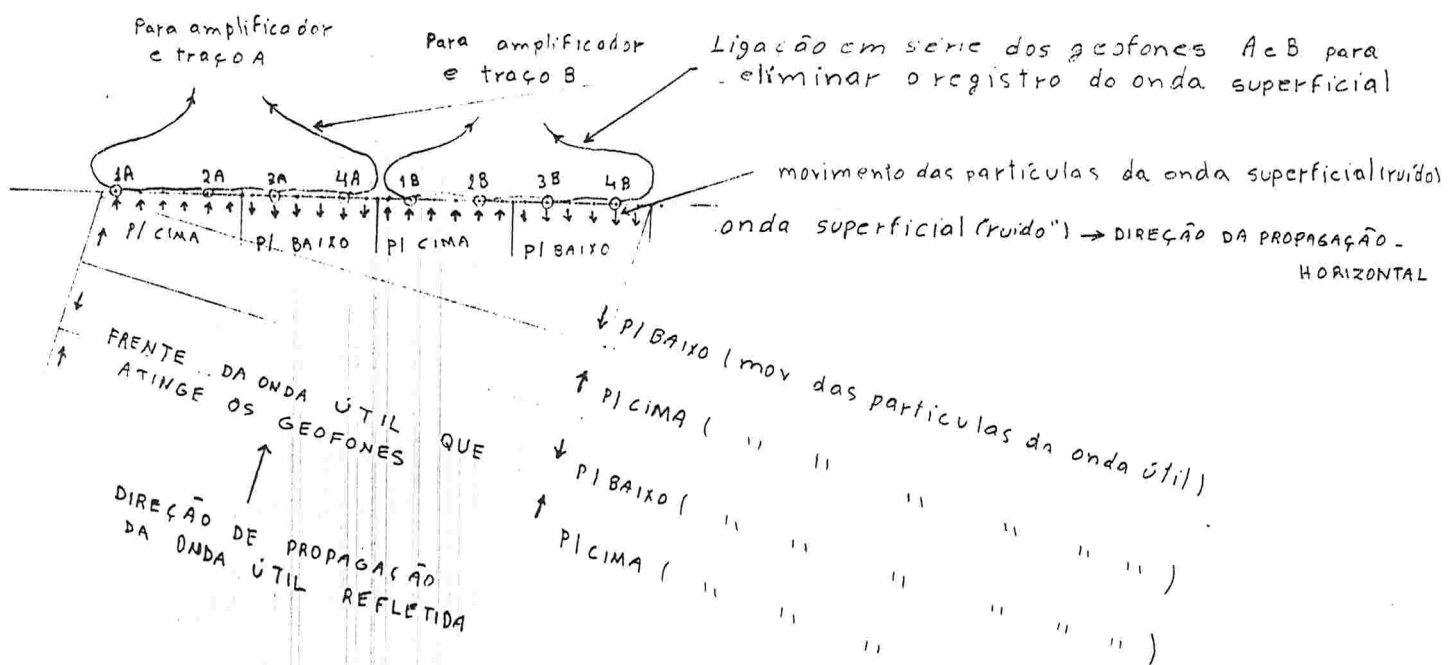 Para amplificador
e traço A
Para amplificador
e traço B
Ligação em série dos geofones A e B para
eliminar o registro do onda superficial
1A 2A 3A 4A 1B 2B 3B 4B
movimento das partículas da onda superficial (ruído)
P/ CIMA P/ BAIXO P/ CIMA P/ BAIXO
onda superficial (ruido") → DIREÇÃO DA PROPAGAÇÃO -
HORIZONTAL
FRENTE DA ONDA ÚTIL QUE
ATINGE OS GEOFONES
DIREÇÃO DE PROPAGAÇÃO
DA ONDA ÚTIL REFLETIDA
↓ P/ BAIXO (mov das partículas da onda útil)
↑ P/ CIMA ( " " " " " " )
↓ P/ BAIXO ( " " " " " " )
↑ P/ CIMA ( " " "